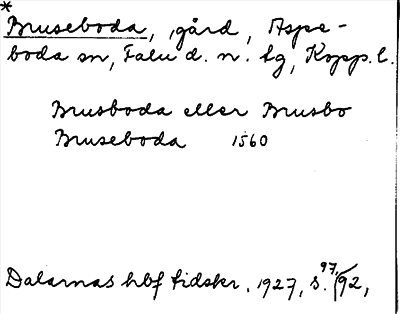 *
Bruseboda, gård, Aspe-
boda sn, Falu d. n. tg, Kopp. l.
Brusboda eller Brusbo
Bruseboda 1560
Dalarnas hbf tidskr. 1927, s. 97, 92,